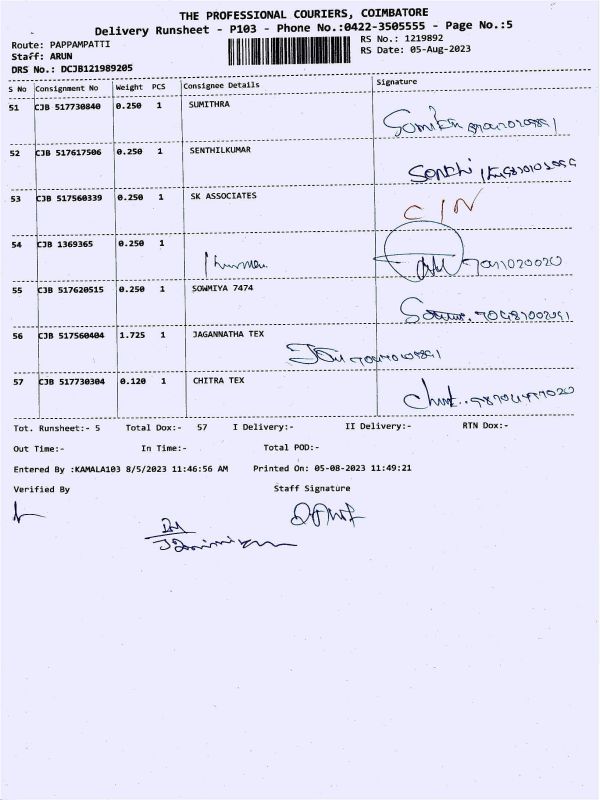 THE PROFESSIONAL COURIERS, COIMBATORE
Delivery Runsheet - P103 - Phone No.:0422-3505555 - Page No.:5
Route: PAPPAMPATTI RS No.: 1219892
Staff: ARUN RS Date: 05-Aug-2023
DRS No.: DCJB121989205
S No Consignment No Weight PCS Consignee Details Signature
51 CJB 517730840 0.250 1 SUMITHRA
52 CJB 517617506 0.250 1 SENTHILKUMAR
53 CJB 517560339 0.250 1 SK ASSOCIATES C/N
54 CJB 1369365 0.250 1
55 CJB 517620515 0.250 1 SOWMIYA 7474
56 CJB 517560404 1.725 1 JAGANNATHA TEX
57 CJB 517730304 0.120 1 CHITRA TEX
Tot. Runsheet:- 5 Total Dox:- 57 I Delivery:- II Delivery:- RTN Dox:-
Out Time:- In Time:- Total POD:-
Entered By :KAMALA103 8/5/2023 11:46:56 AM Printed On: 05-08-2023 11:49:21
Verified By Staff Signature